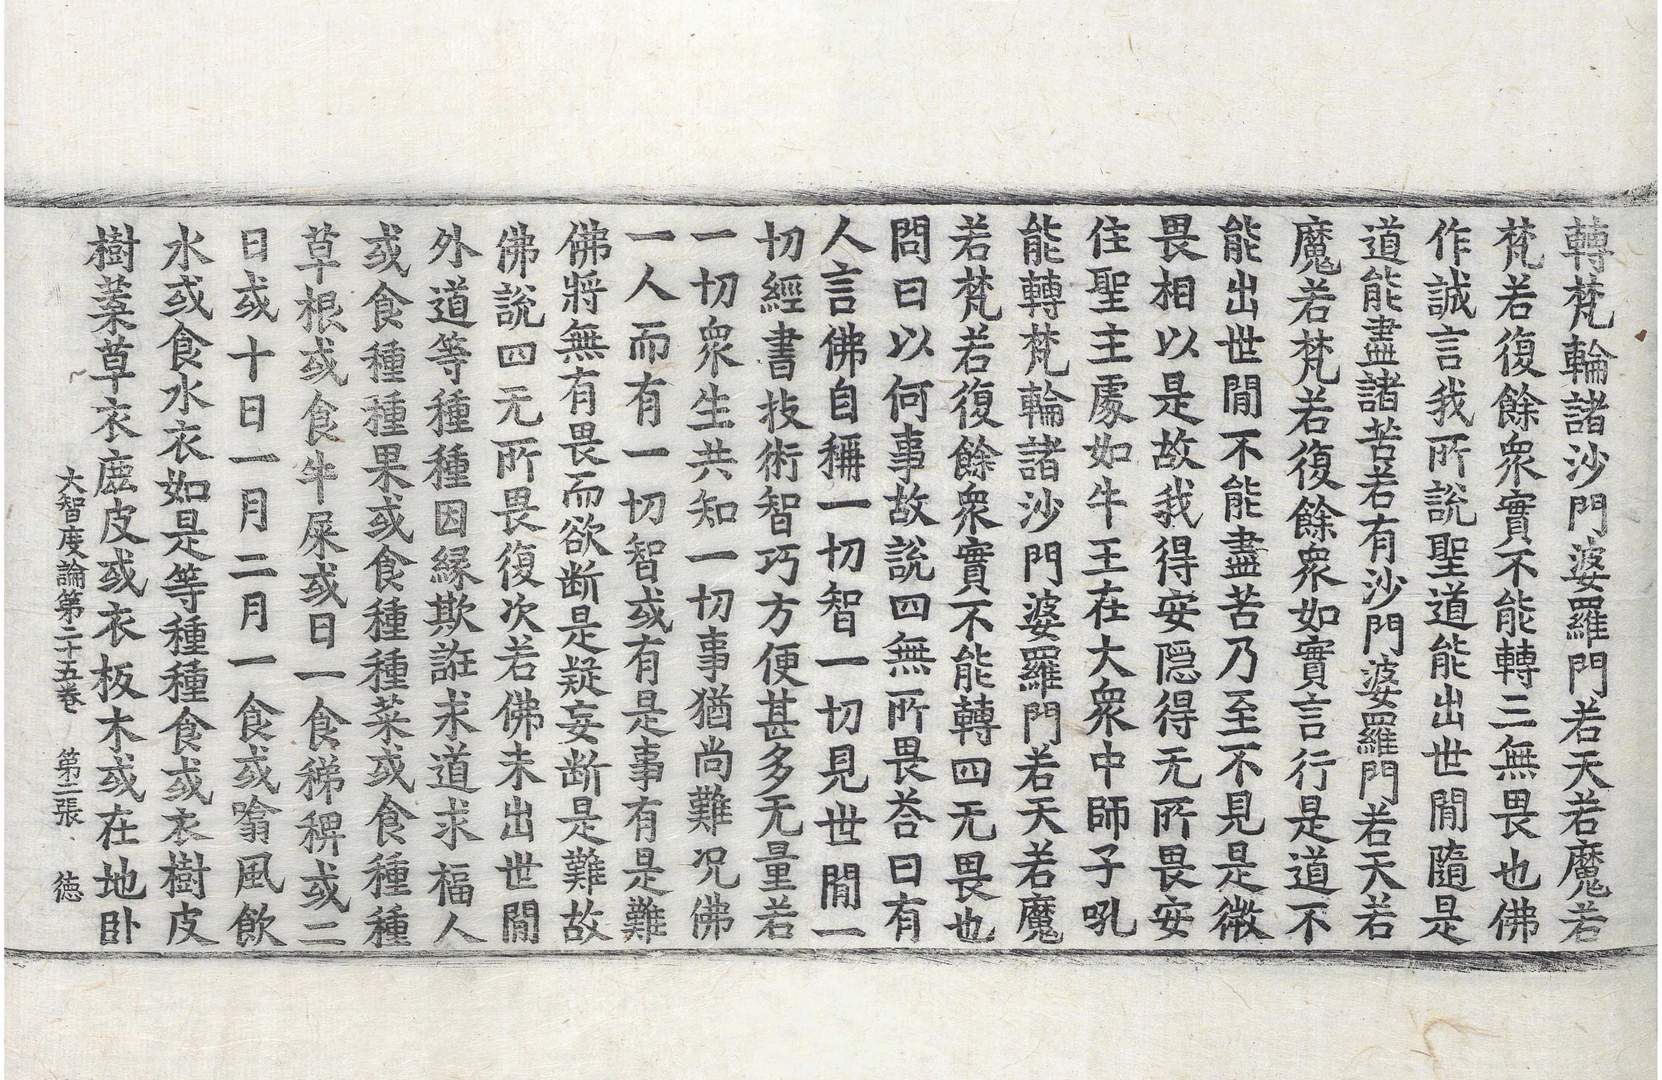 轉梵輪諸沙門婆羅門若天若魔若
梵若復餘衆實不能轉三無畏也佛
作誠言我所說聖道能出世閒隨是
道能盡諸苦若有沙門婆羅門若天若
魔若梵若復餘衆如實言行是道不
能出世閒不能盡苦乃至不見是微
畏相以是故我得安隠得无所畏安
住聖主處如牛王在大衆中師子吼
能轉梵輪諸沙門婆羅門若天若魔
若梵若復餘衆實不能轉四无畏也
問曰以何事故說四無所畏荅曰有
人言佛自稱一切智一切見世閒一
切經書技術智巧方便甚多无量若
一切衆生共知一切事猶尚難況佛
一人而有一切智或有是事有是難
佛將無有畏而欲断是疑妄断是難故
佛說四无所畏復次若佛未出世閒
外道等種種因縁欺誑求道求福人
或食種種果或食種種菜或食種種
草根或食牛屎或日一食稊稗或二
日或十日一月二月一食或噏風飲
水或食水衣如是等種種食或衣樹皮
樹葉草衣鹿皮或衣板木或在地卧
大智度論第二十五卷　第二張　徳